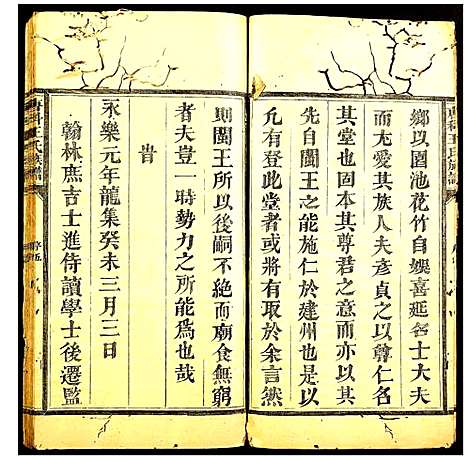 鄉以園池花竹自娛喜延名士大夫
而尤愛其族人夫彥貞之以尊仁名
其堂也固本其尊君之意而亦以其
先自閩王之能施仁於建州也是以
凡有登此堂者或將有取於余言然
則閩王所以後嗣不絶而廟食無窮
者夫豈一時勢力之所能爲也哉
旹
永樂元年龍集癸未三月三日
翰林庶吉士進侍讀學士後遷監
王氏族譜